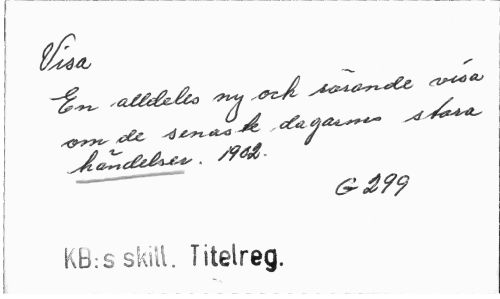 Visa
En alldeles ny och rörande visa
om de senaste dagarnes stora
händelser. 1902.
G 299
KB:s skill. Titelreg.